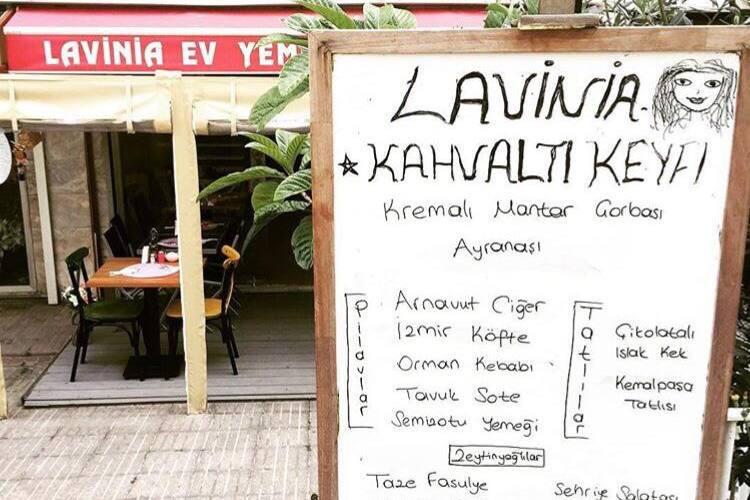 LAVİNİA EV YEM
LAVİNİA
★ KAHVALTI KEYFİ
Kremalı Mantar Çorbası
Ayranaşı
Pilavlar
Arnavut Ciğer
İzmir Köfte
Orman Kebabı
Tavuk Sote
Semizotu Yemeği
Tatlılar
Çikolatalı
Islak Kek
Kemalpaşa
Tatlısı
Zeytinyağlılar
Taze Fasulye
Şehriye Salatası